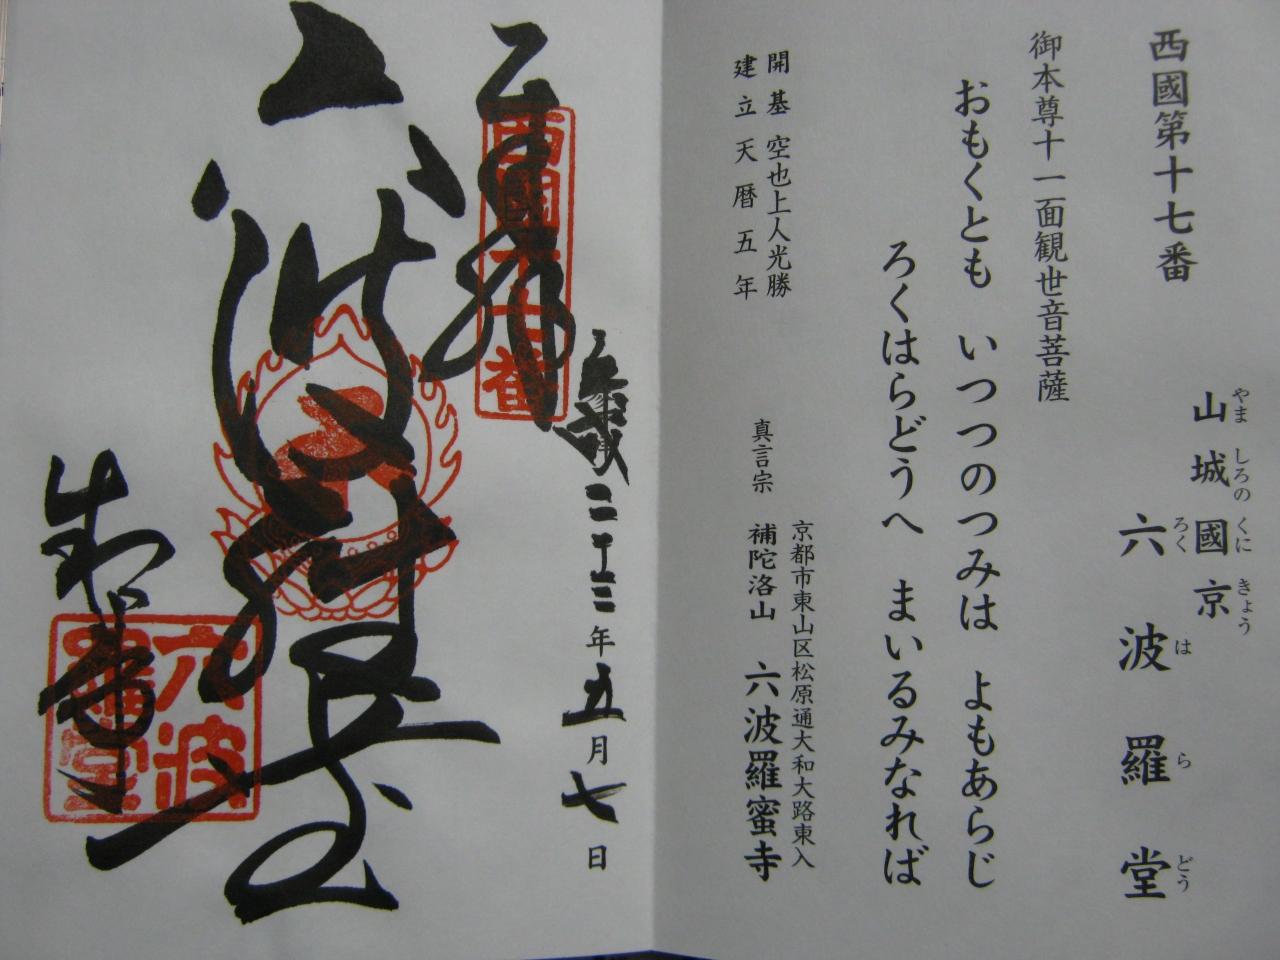 西國第十七番
山城國京
やましろのくにきょう
六波羅堂
ろくはらどう
御本尊十一面観世音菩薩
おもくとも いつつのつみは よもあらじ
ろくはらどうへ まいるみなれば
開基 空也上人光勝
建立 天暦五年
京都市東山区松原通大和大路東入
真言宗 補陀洛山 六波羅蜜寺
西國十七番
二十三年五月七日
六波羅堂
六波羅堂